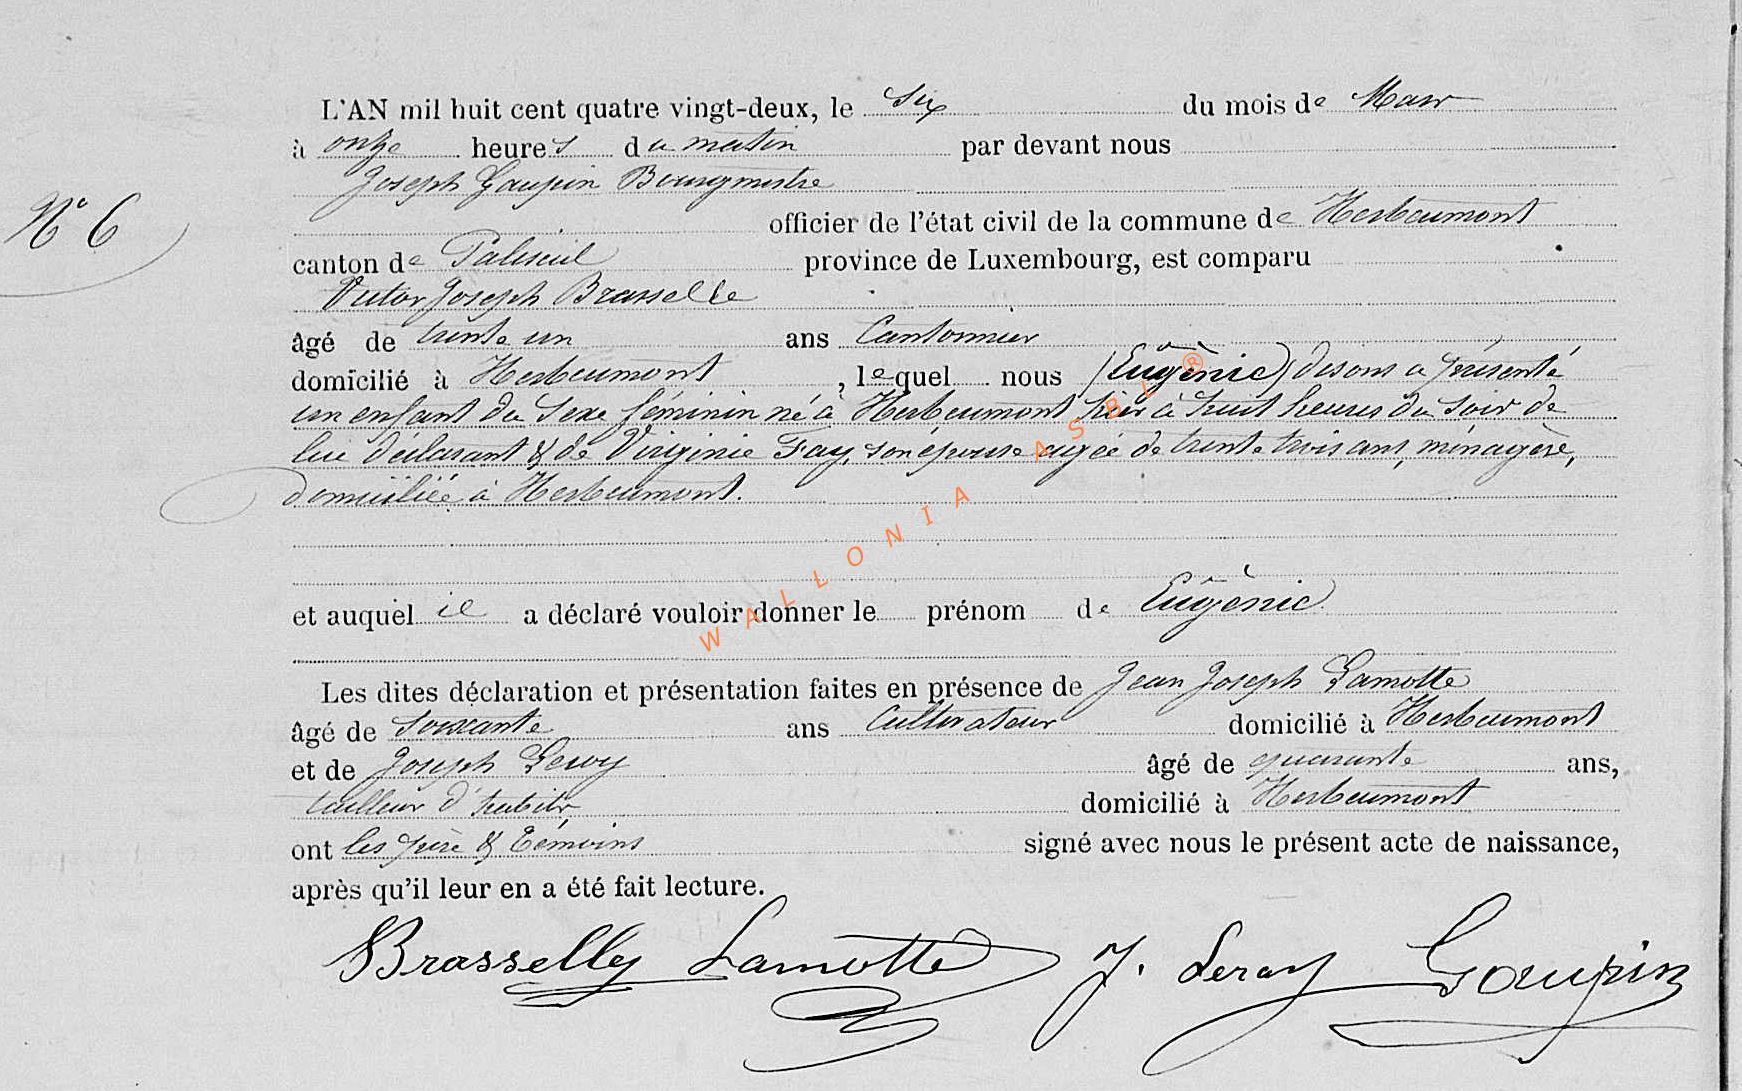 L'AN mil huit cent quatre vingt-deux, le six du mois de Mars
à onze heures du matin par devant nous
Joseph Goupin Bourgmestre
N° 6
officier de l'état civil de la commune de Herbeumont
canton de Paliseul province de Luxembourg, est comparu
Victor Joseph Brasselle
âgé de trente un ans Cantonnier
domicilié à Herbeumont, lequel nous (Eugénie) disons a présenté
un enfant du sexe féminin né à Herbeumont hier à huit heures du soir de
lui déclarant & de Virginie Fay, son épouse agée de trente trois ans, ménagère,
domiciliée à Herbeumont.
et auquel il a déclaré vouloir donner le prénom de Eugénie
Les dites déclaration et présentation faites en présence de Jean Joseph Lamotte
âgé de soixante ans Cultivateur domicilié à Herbeumont
et de Joseph Leroy âgé de quarante ans,
tailleur d'habits domicilié à Herbeumont
ont les père & témoins signé avec nous le présent acte de naissance,
après qu'il leur en a été fait lecture.
Brasselle Lamotte J. Leroy Goupin
WALLONIA ASBL ®